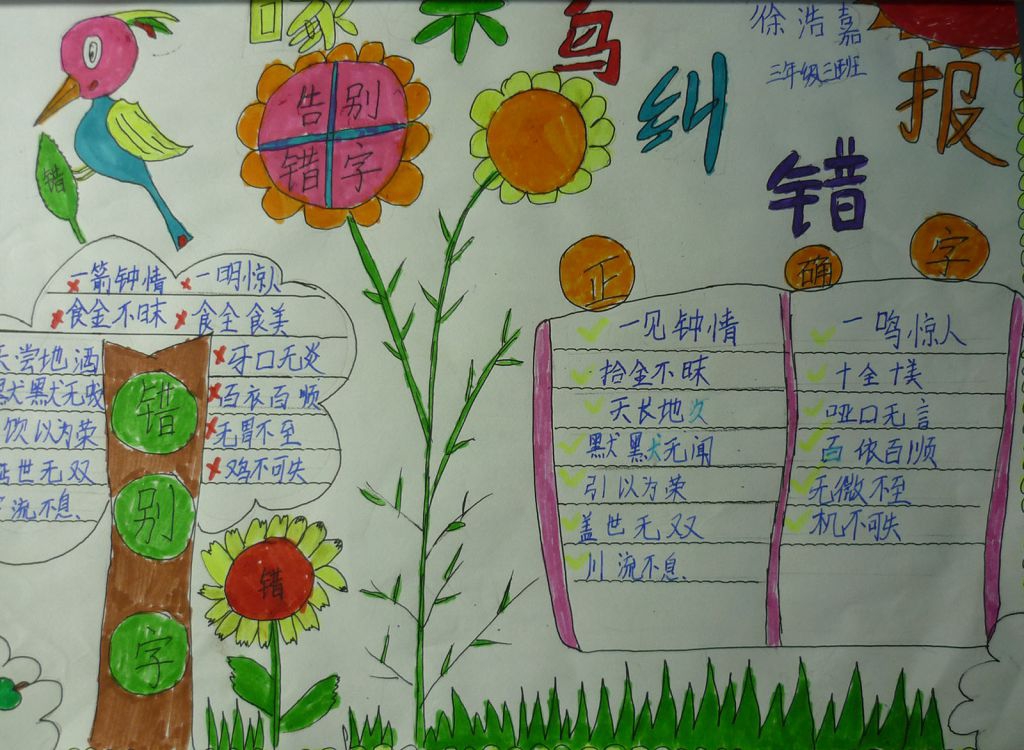 啄木鸟
徐浩嘉
三年级三班
纠错报
告别
错字
错
正确字
一箭钟情 一明惊人
食金不昧 食全食美
尝地酒 牙口无炎
默默无 百衣百顺
饮以为荣 无胃不至
世无双 鸡不可失
流不息.
错
别
字
错
一见钟情 一鸣惊人
拾金不昧 十全十美
天长地久 哑口无言
默默无闻 百依百顺
引以为荣 无微不至
盖世无双 机不可失
川流不息.